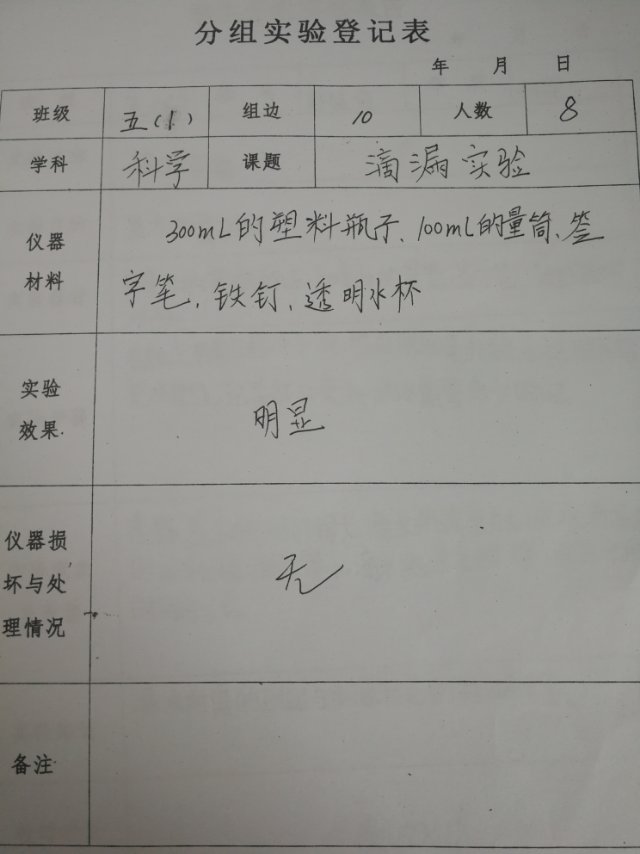 分组实验登记表
年 月 日
班级 五(1) 组边 10 人数 8
学科 科学 课题 滴漏实验
仪器材料 300mL的塑料瓶子、100mL的量筒、签
字笔、铁钉、透明水杯
实验效果. 明显
仪器损坏与处理情况 无
备注